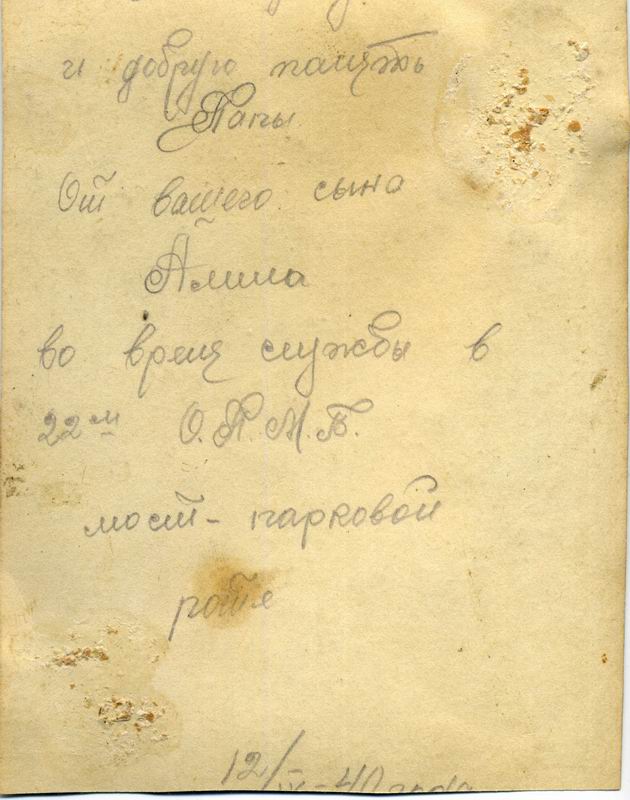 и добрую память
Папы
От вашего сына
во время службы в
22м О.П.М.Б.
мост-парковой
роте
12/IV-40 года